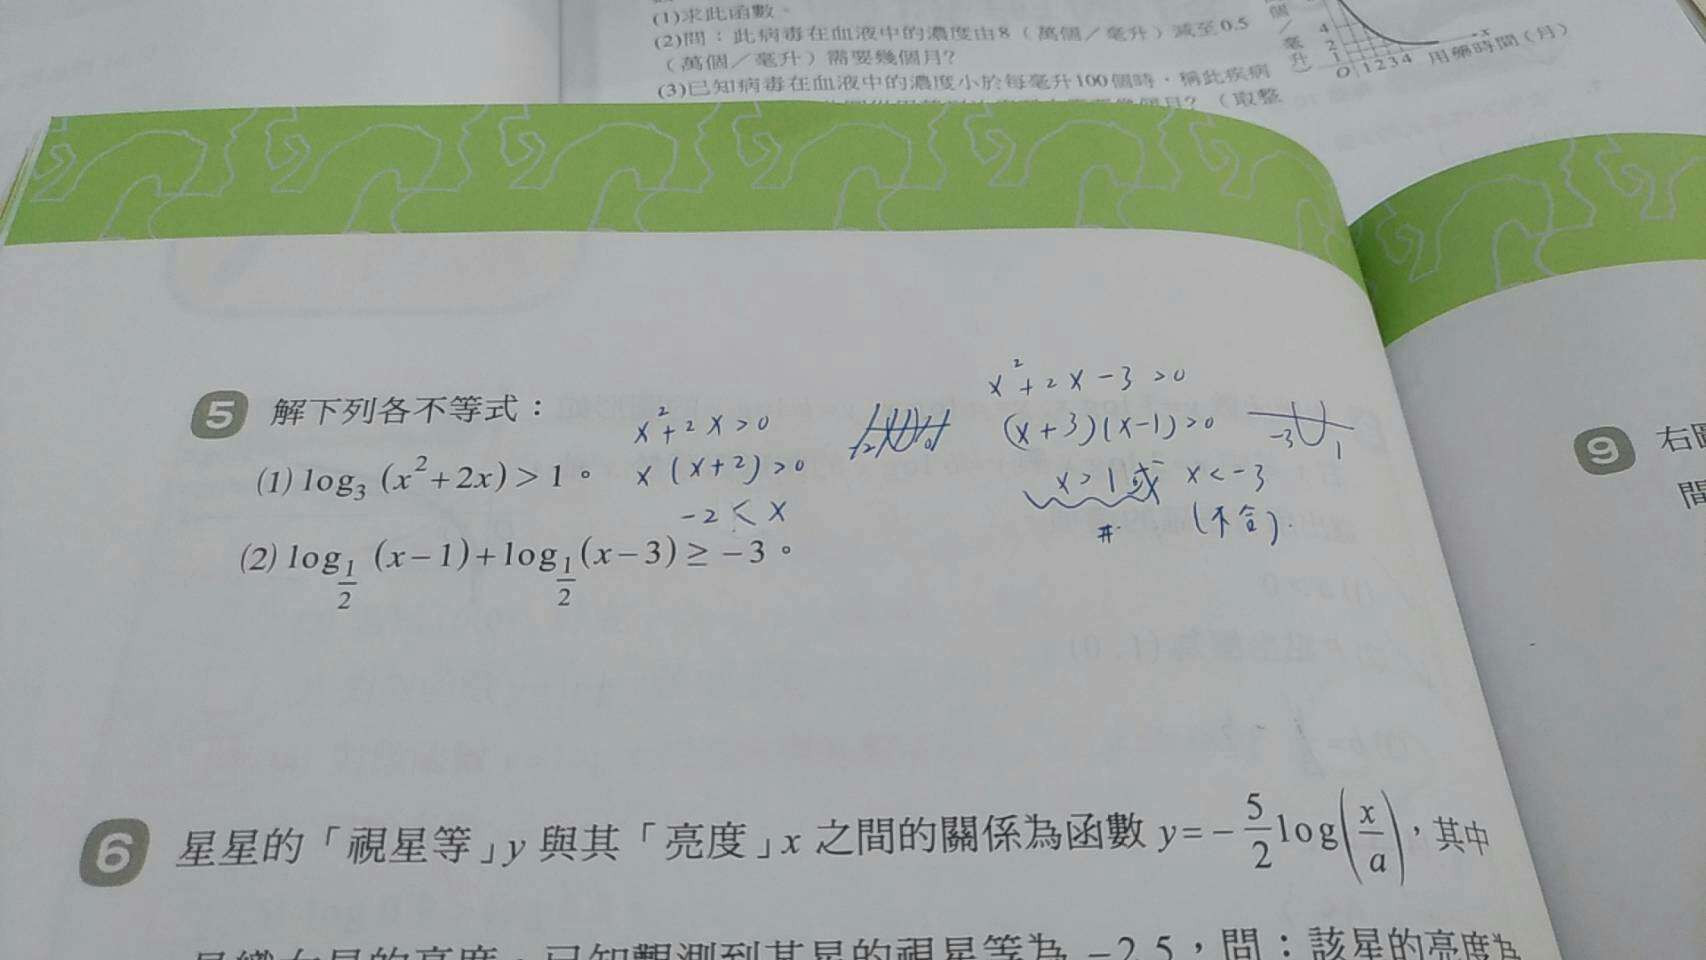 (1)求此函數。
(2)問：此病毒在血液中的濃度由8（萬個／毫升）減至0.5
（萬個／毫升）需要幾個月？
(3)已知病毒在血液中的濃度小於每毫升100個時，稱此疾病
個月？（取整
個／毫升）
4
2
1
O 1 2 3 4
x
用藥時間（月）
5 解下列各不等式：
(1) log₃ (x²+2x) > 1。
(2) log_{1/2} (x−1)+log_{1/2} (x−3) ≥ −3。
x²+2x>0
x(x+2)>0
-2<x
x²+2x-3>0
(x+3)(x-1)>0
-3 1
x>1 或 x<-3
# (不合)
6 星星的「視星等」y 與其「亮度」x 之間的關係為函數 y=−5/2 log(x/a)，其中
星的亮度，已知觀測到某星的視星等為 −2.5，問：該星的亮度為
9 右圖
間